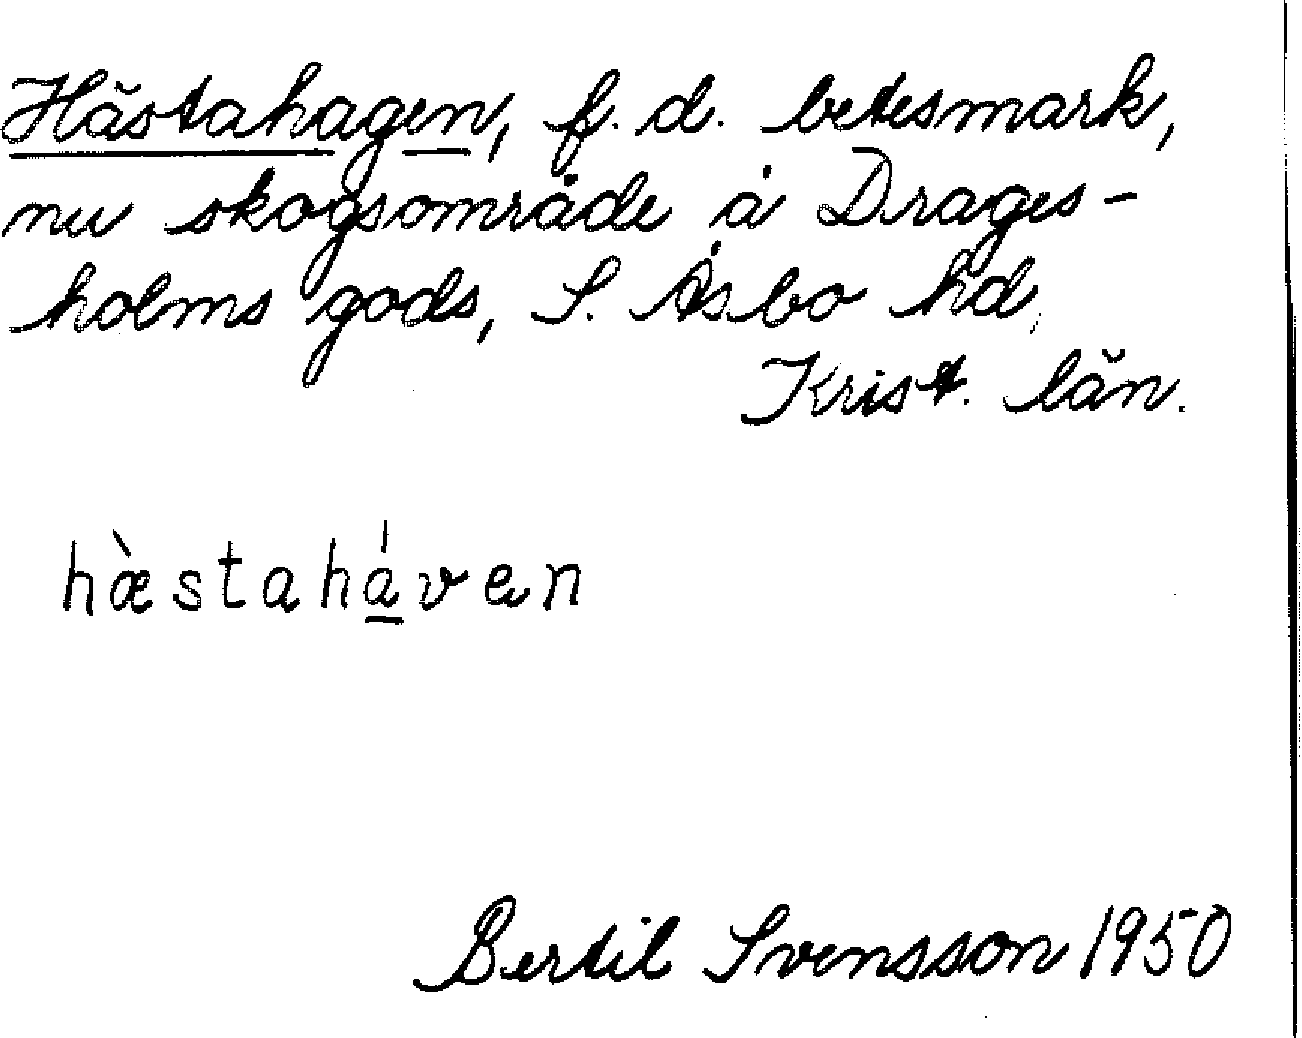 Hästahagen, f. d. betesmark,
nu skogsområde å Drages-
holms gods, S. Åsbo hd,
Krist. län.
hæ̀stahá̱ven
Bertil Svensson 1950